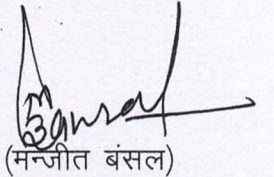 (मन्जीत बंसल)